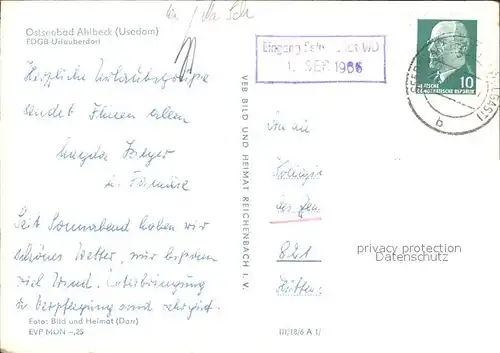 Ostseebad Ahlbeck (Usedom)
FDGB-Urlauberdorf
Herzliche Urlaubsgrüße
sendet Ihnen allen
Magda Beyer
u. Familie
Seit Sonnabend haben wir
schönes Wetter, nur bißchen
viel Wind. Unterbringung
u. Verpflegung sind sehr gut.
Foto: Bild und Heimat (Darr)
EVP MDN -,25
VEB BILD UND HEIMAT REICHENBACH I. V.
Eingang
1. SEP. 1966
DEUTSCHE
DEMOKRATISCHE REPUBLIK
10
b
An die
des
821
privacy protection
Datenschutz
III/18/6 A 1/